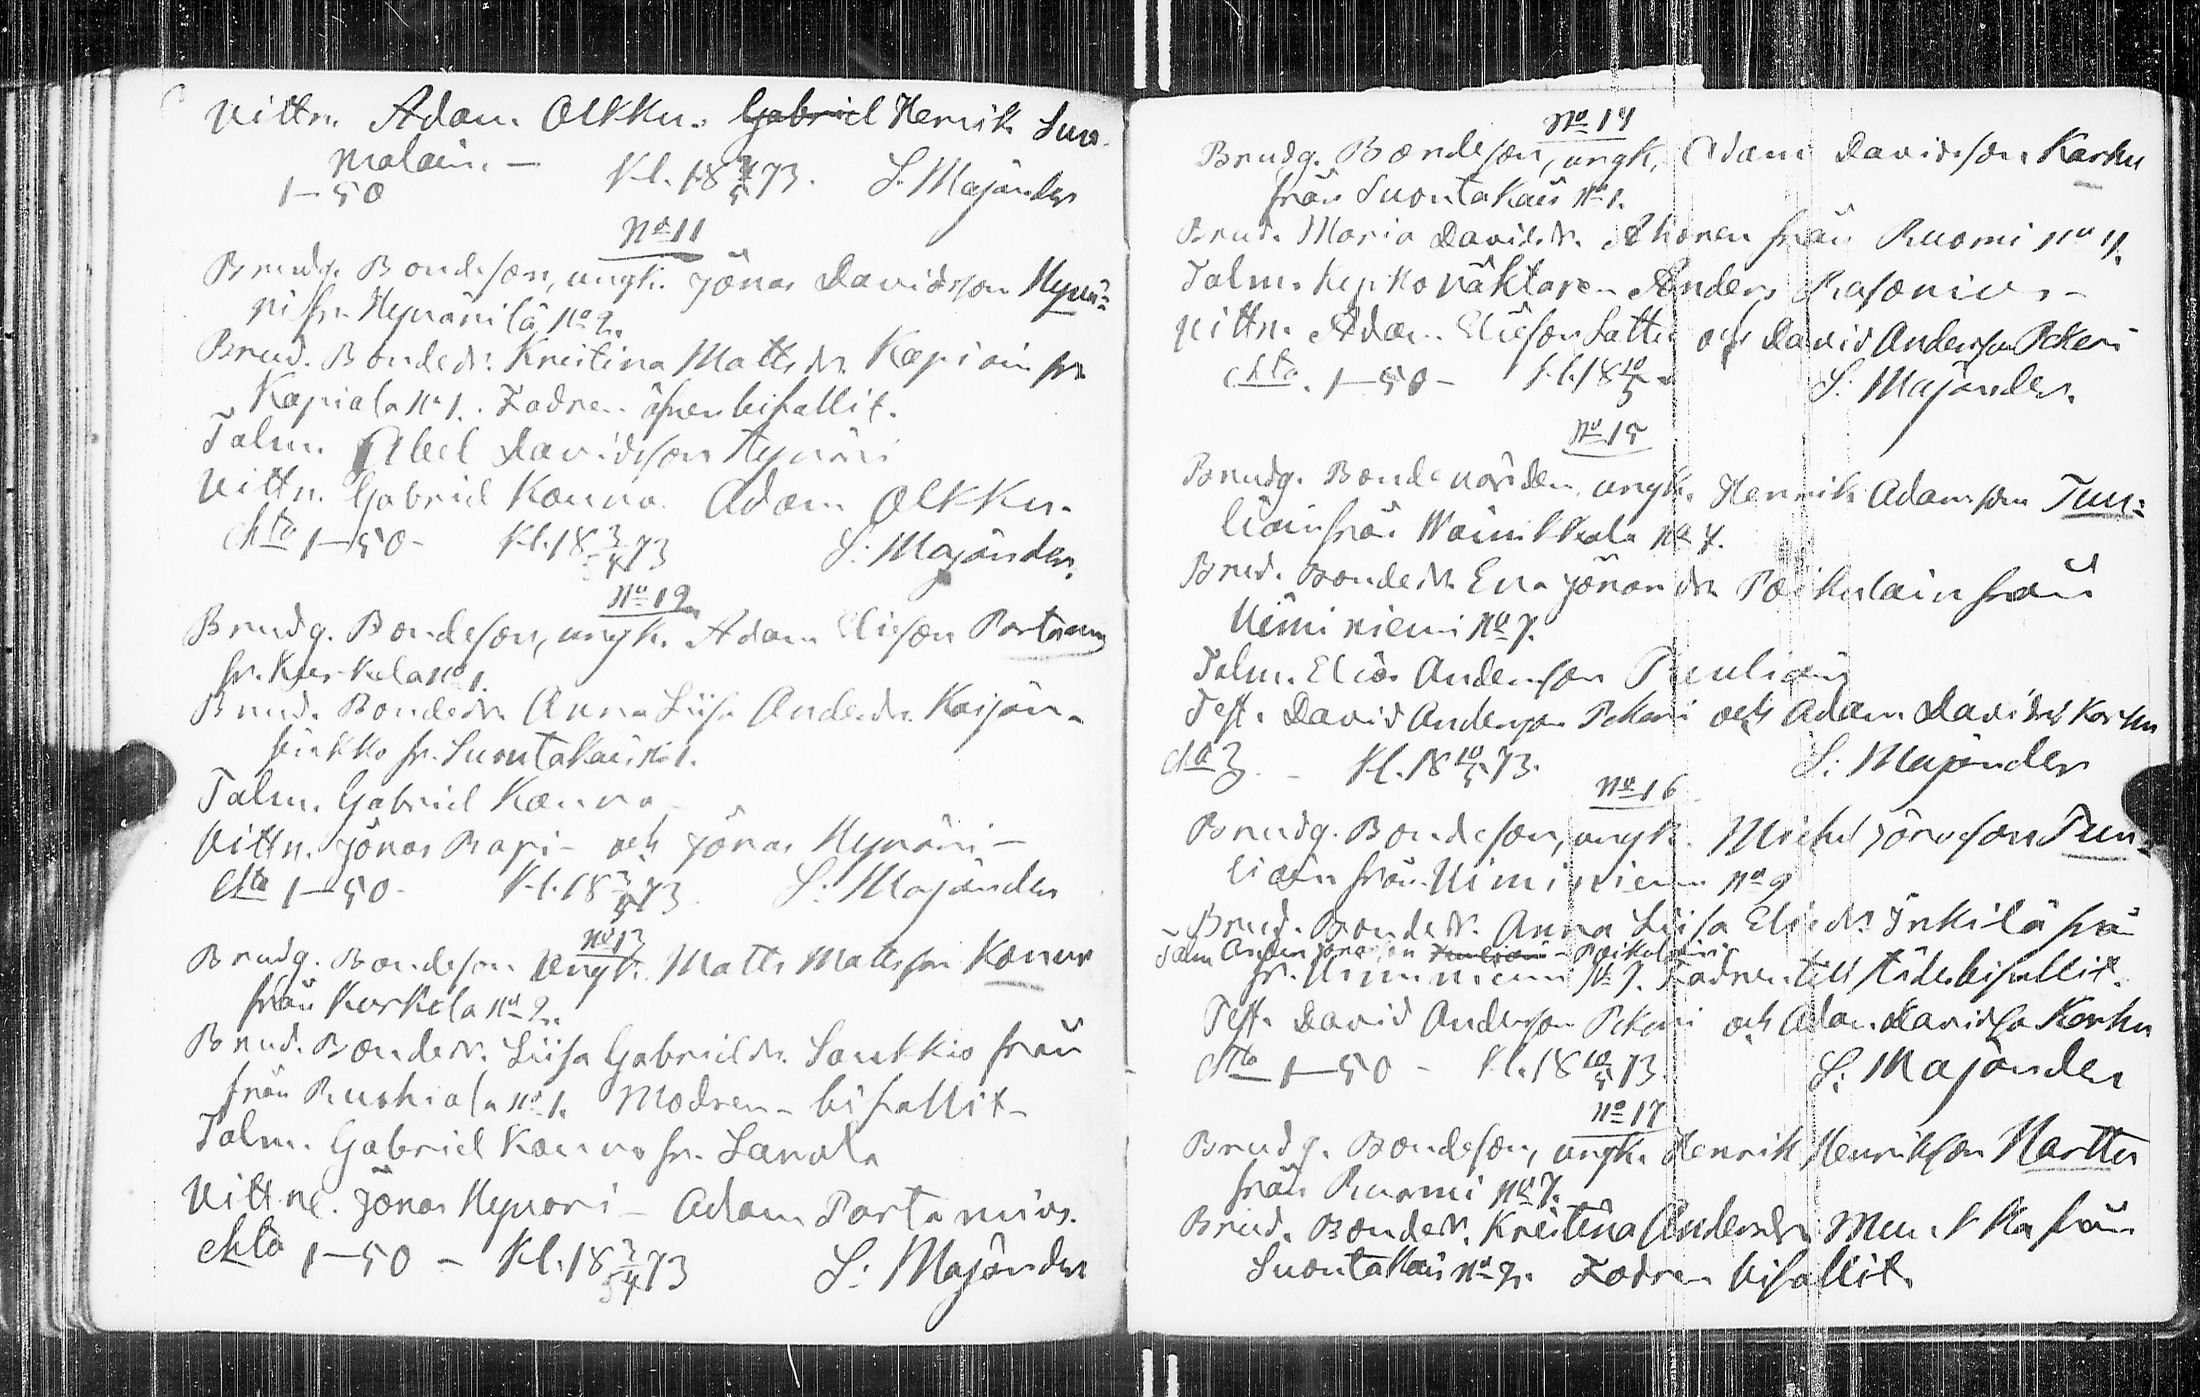 Vittn. Adam Olkku. Gabriel Henrik Suo-
malain. —
1—50 Kl. 18 3/5 73. S. Majander
No 11
Brudg. Bondeson, ungk. Jönas Davidsson Hynä-
ri fr. Hynärilä No 2.
Brud. Bondedr. Kristina Mattsdr. Kapiain fr.
Kapiala No 1. Fadren äfven bifallit.
Talm. Abel Davidsson Hynäri
Vittn. Gabriel Kounu Adam Olkku.
1—50 - Kl. 18 3/5 73 S: Majander.
No 12
Brudg. Bondeson, ungk. Adam Elieson Partanen
fr. Kurkela No 1.
Brud. Bondedr. Anna Liisa Andersdr. Kaijan-
sinkko fr. Suontakais No 1.
Talm. Gabriel Kounu
Vittn. Jönas Rapi - och Jönas Hynäri —
1—50 - Kl. 18 3/5 73 S: Majander
No 13
Brudg. Bondeson Ungk. Matts Mattsson Kounu
från Kurkela No 2.
Brud. Bondedr. Liisa Gabrielsdr. Saukkio från
från Ruohiala No 1. Modren - bifallit -
Talm. Gabriel Kounu fr. Lavola
Vittne. Jönas Hynäri — Adam Partanius.
1—50 — Kl. 18 3/5 73 S: Majander
No 14
Brudg. Bondeson, ungk. Adam Davidsson Karhu
från Suontakais No 1.
Brud. Maria Davidsdr. Ahonen från Ruomi No 4.
Talm. Kyrkoväktaren Anders Rasonius -
Vittn. Adam Elieson Lattu och David Andersson Pekari
1—50 - Kl. 18 10/5 S: Majander.
No 15
Brudg. Bondevärden, ungk. Henrik Adamsson Tuu-
liain från Wainikkala No 4.
Brud. Bondedr. Eva Jönasdr. Poikulain från
Uiminiemi No 7.
Talm. Elias Andersson Tuuliain
Test. David Andersson Pekari och Adam Davids Karhu
3 - Kl. 18 10/5 73. S: Majander
No 16
Brudg. Bondeson, ungk. Michel Jönasson Tuu-
liain från Uiminiemi No 9
Brud. Bondedr. Anna Liisa Eliedr. Inkilä frå
Talm Anders Jönasson Tuuliain Poikulain
fr. Uiminiemi No 7. Fadren till städes bifallit.
Test. David Andersson Pekari och Adam Davidsso Karhu
1—50 - Kl. 18 10/5 73. S: Majander
No 17
Brudg. Bondeson, ungk. Henrik Henriksson Harttu
från Ruomi No 7.
Brud. Bondedr. Kristina Andersdr. Mu.kka från
Suontakais No 2. Fadren bifallit.